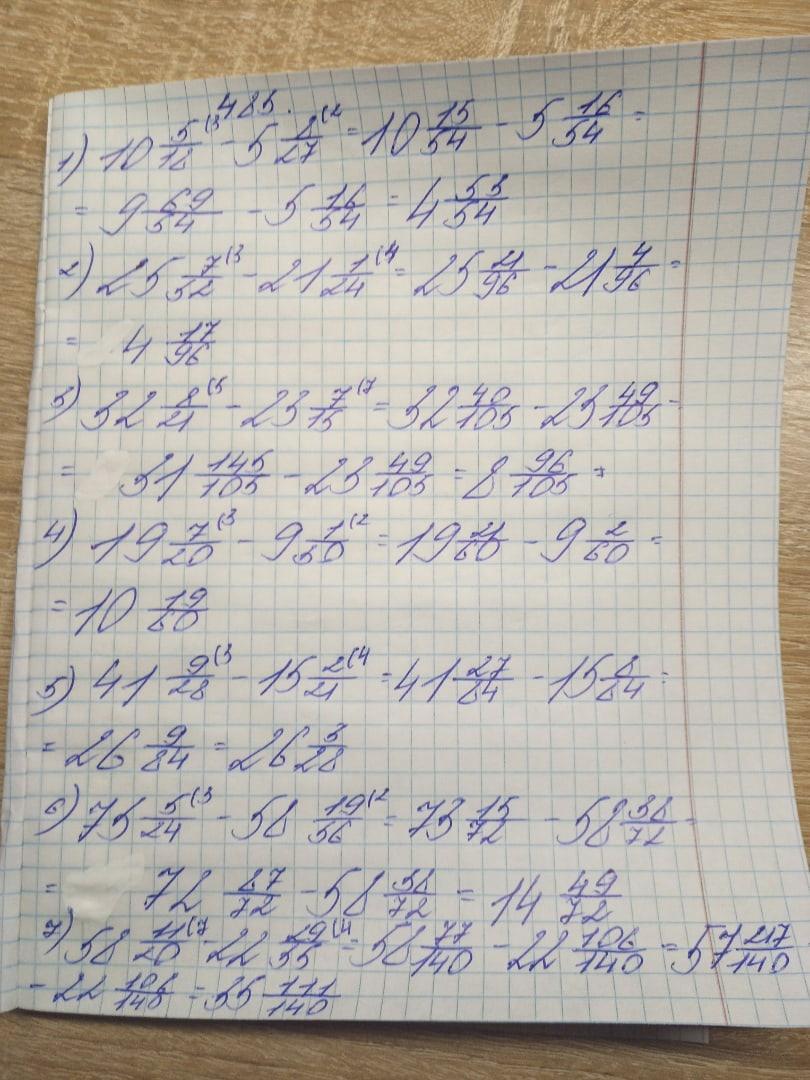 485.
1) 10 5/18 (3 - 5 8/27 (2 = 10 15/54 - 5 16/54 =
= 9 69/54 - 5 16/54 = 4 53/54
2) 25 7/32 (3 - 21 1/24 (4 = 25 21/96 - 21 4/96 =
= 4 17/96
3) 32 8/21 (5 - 23 7/15 (7 = 32 40/105 - 23 49/105 =
= 31 145/105 - 23 49/105 = 8 96/105 =
4) 19 7/20 (3 - 9 1/30 (2 = 19 21/60 - 9 2/60 =
= 10 19/60
5) 41 9/28 (3 - 15 2/21 (4 = 41 27/84 - 15 8/84 =
= 26 9/84 = 26 3/28
6) 73 5/24 (3 - 58 19/36 (2 = 73 15/72 - 58 38/72 =
= 72 87/72 - 58 38/72 = 14 49/72
7) 58 11/20 (7 - 22 29/35 (4 = 58 77/140 - 22 106/140 = 57 217/140
- 22 106/140 = 35 111/140